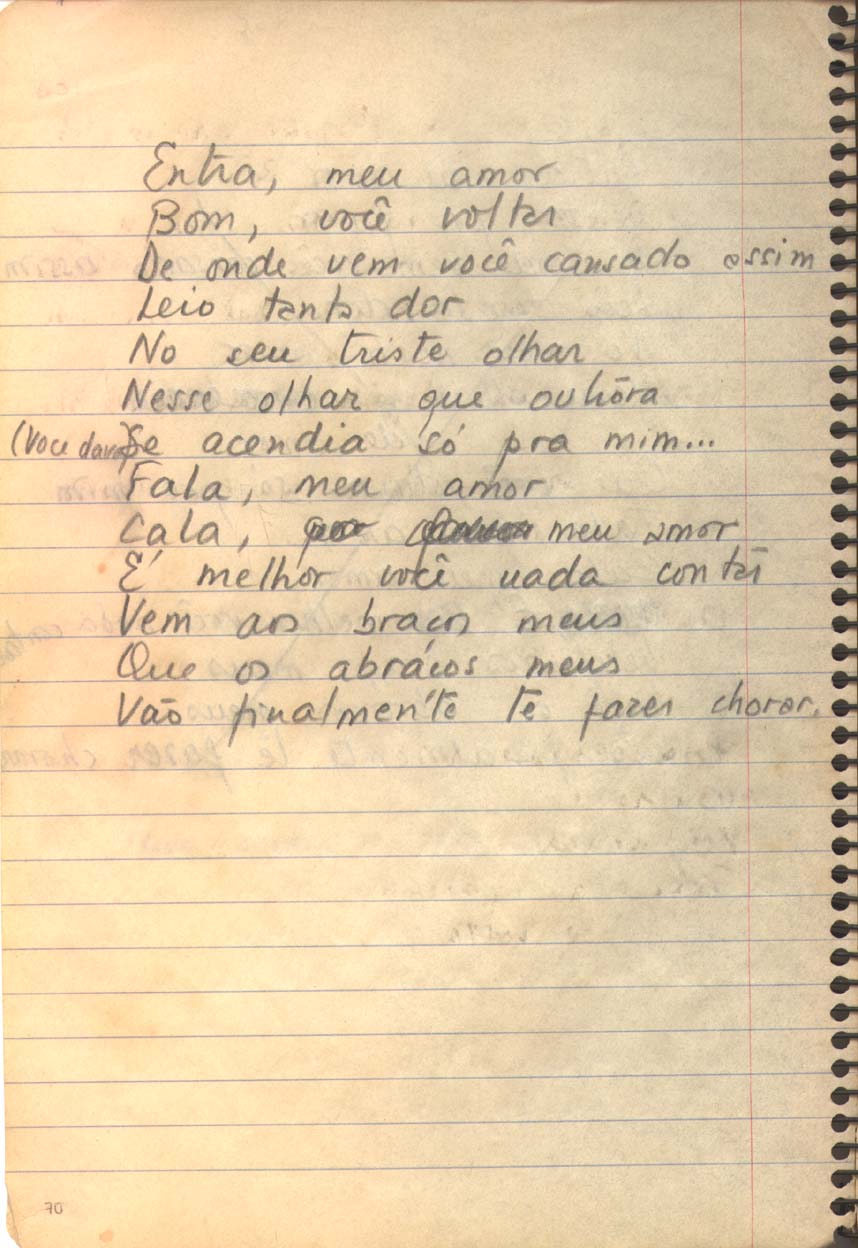 Entra, meu amor
Bom, você voltar
De onde vem você cansado assim
Leio tanta dor
No seu triste olhar
Nesse olhar que outrora
(Voce dava) Se acendia só pra mim...
Fala, meu amor
Cala, meu amor
É melhor você nada contar
Vem aos braços meus
Que os abraços meus
Vão finalmente te fazer chorar.
70